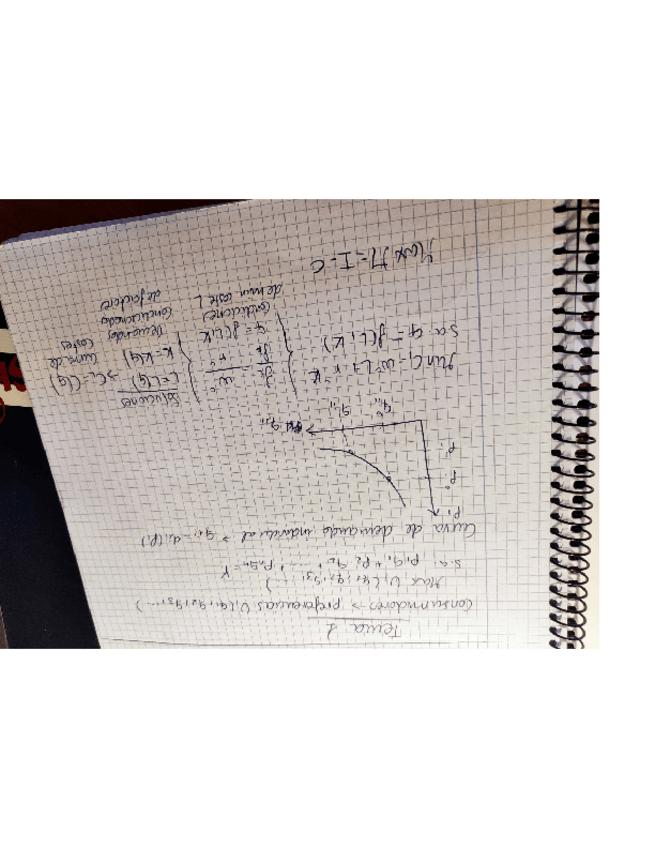 Tema 1
Consumidores → preferencias U₁(q₁, q₂, q₃, ...)
Max U₁(q₁, q₂, q₃, ...)
s.a. p₁q₁ + p₂q₂ + ... + pₙqₙ = Y
Curva de demanda individual → q₁ᵢ = dᵢ(p₁)
p₁
p⁰
p¹
q⁰₁ᵢ q¹₁ᵢ q₁ᵢ
Min Cᵢ = w⁰L + r⁰K
s.a. q = f(L, K)
fL / fK = w⁰ / r⁰
q = f(L, K)
Condiciones
de min coste
Soluciones
L = L(q)
K = K(q)
→ Cᵢ = C(q)
Demandas
condicionadas
de factores
Curva de
costes
Max Π = I - C